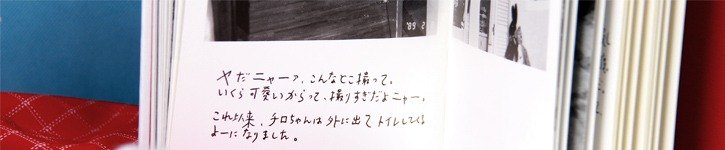 ヤだニャーっ、こんなとこ撮って。
いくら可愛いからって、撮りすぎだよニャー。
これ以来、チロちゃんは外に出てトイレしてくる
よーになりました。